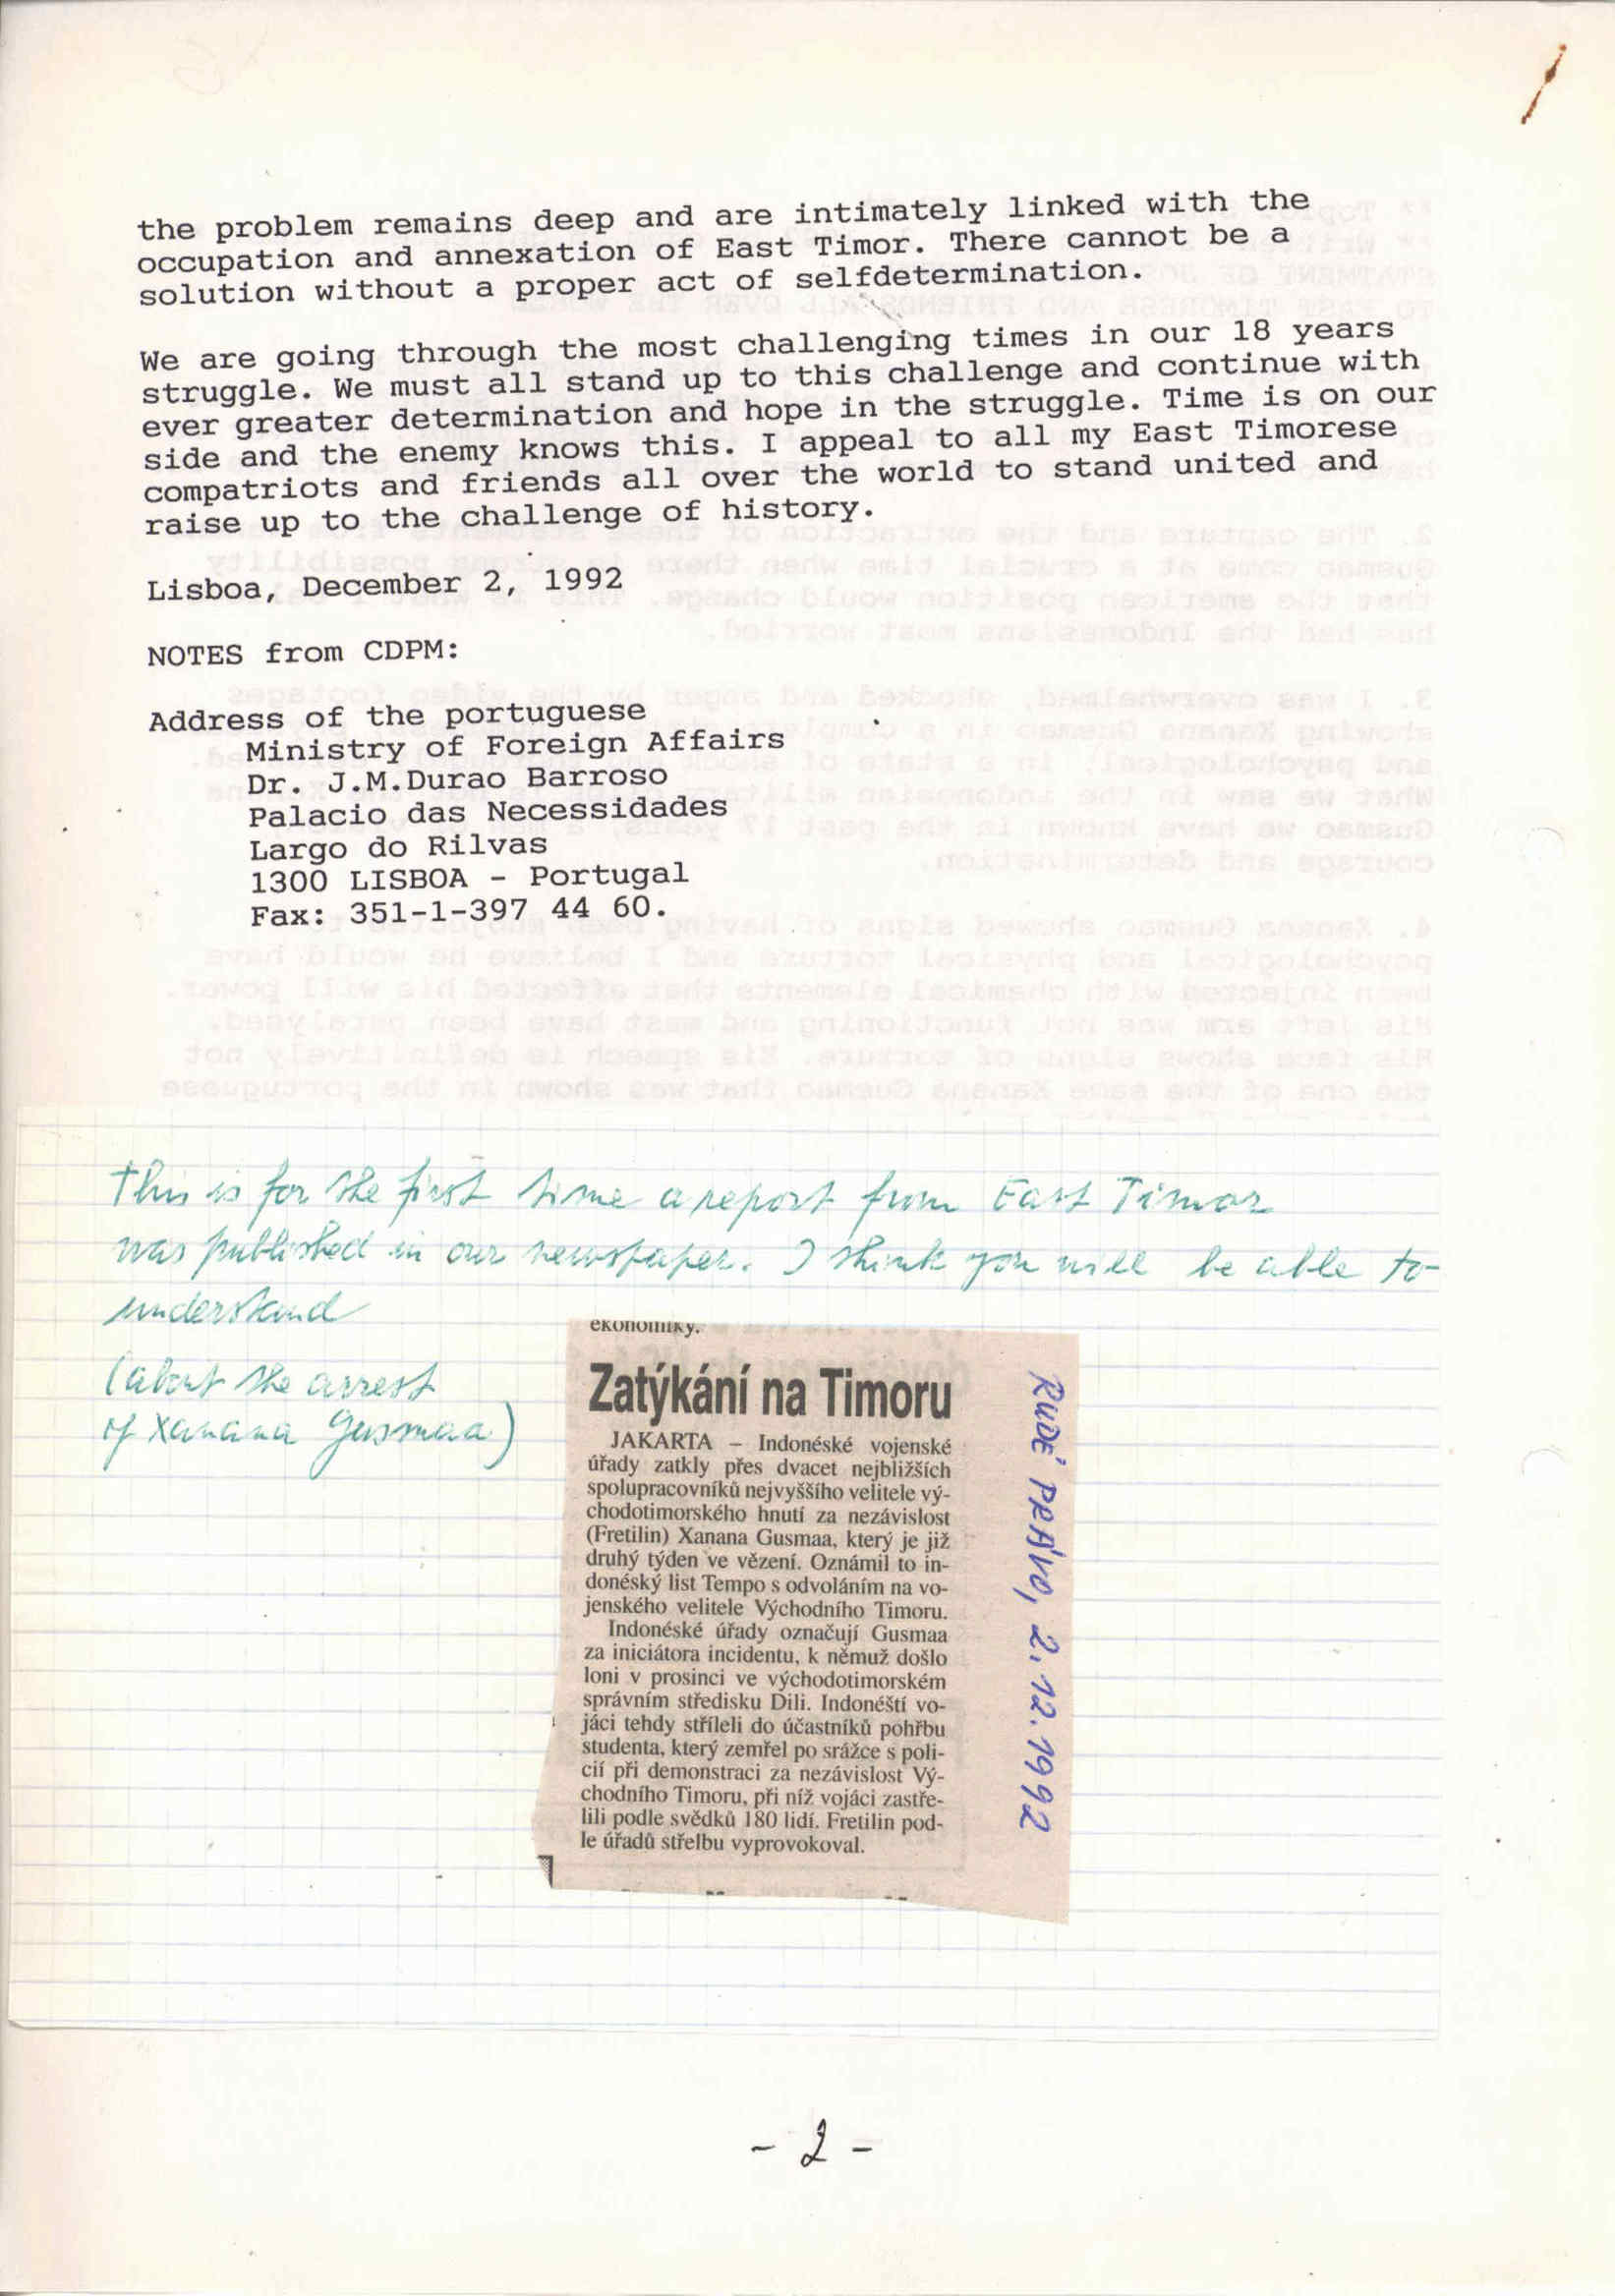 the problem remains deep and are intimately linked with the
occupation and annexation of East Timor. There cannot be a
solution without a proper act of selfdetermination.
We are going through the most challenging times in our 18 years
struggle. We must all stand up to this challenge and continue with
ever greater determination and hope in the struggle. Time is on our
side and the enemy knows this. I appeal to all my East Timorese
compatriots and friends all over the world to stand united and
raise up to the challenge of history.
Lisboa, December 2, 1992
NOTES from CDPM:
Address of the portuguese
Ministry of Foreign Affairs
Dr. J.M.Durao Barroso
Palacio das Necessidades
Largo do Rilvas
1300 LISBOA - Portugal
Fax: 351-1-397 44 60.
This is for the first time a report from East Timor
was published in our newspaper. I think you will be able to
understand
(about the arrest
of Xanana Gusmaa)
ekonomiky.
Zatýkání na Timoru
JAKARTA – Indonéské vojenské
úřady zatkly přes dvacet nejbližších
spolupracovníků nejvyššího velitele vý-
chodotimorského hnutí za nezávislost
(Fretilin) Xanana Gusmaa, který je již
druhý týden ve vězení. Oznámil to in-
donéský list Tempo s odvoláním na vo-
jenského velitele Východního Timoru.
Indonéské úřady označují Gusmaa
za iniciátora incidentu, k němuž došlo
loni v prosinci ve východotimorském
správním středisku Dili. Indonéští vo-
jáci tehdy stříleli do účastníků pohřbu
studenta, který zemřel po srážce s poli-
cií při demonstraci za nezávislost Vý-
chodního Timoru, při níž vojáci zastře-
lili podle svědků 180 lidí. Fretilin pod-
le úřadů střelbu vyprovokoval.
RUDÉ PRÁVO, 2.12.1992
- 2 -